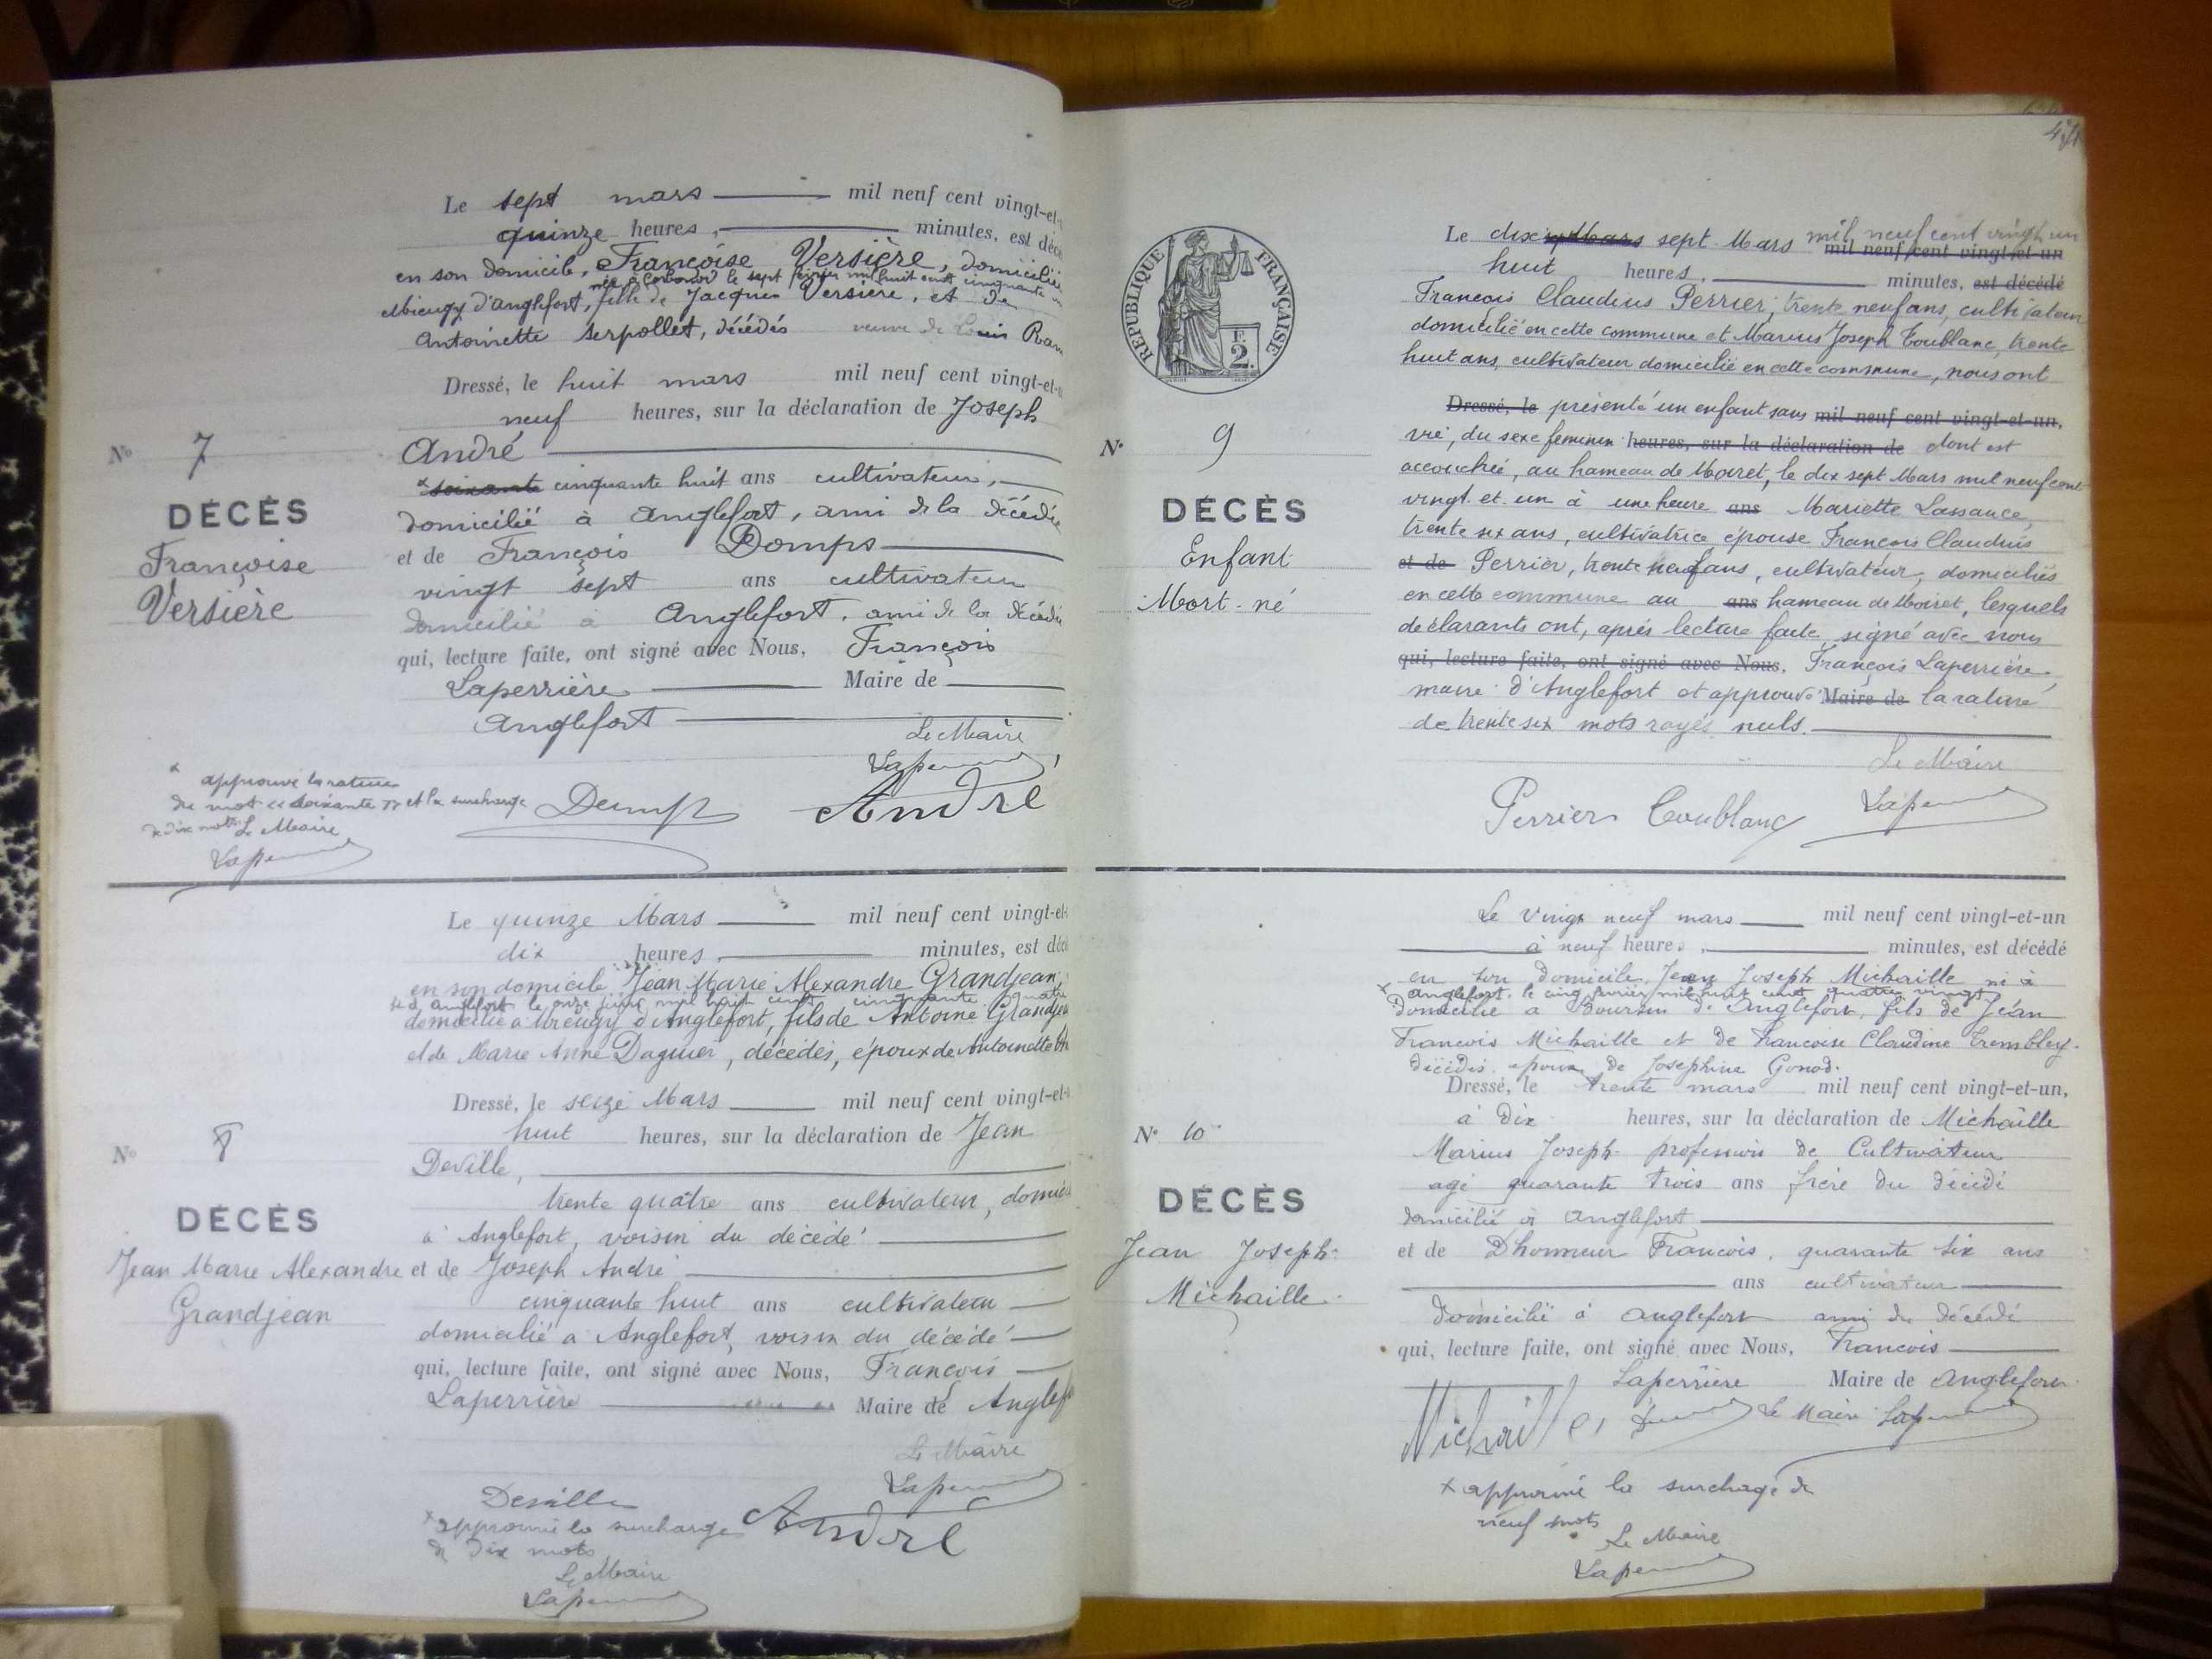 Le sept mars mil neuf cent vingt-et-
quinze heures, minutes, est décé
en son domicile, Françoise Versière, domiciliée
née à le sept février mil huit cent cinquante
d'anglefort, fille de Jacques Versière, et de
Antoinette Serpollet, décédés veuve de Louis
Dressé, le huit mars mil neuf cent vingt-et-u
neuf heures, sur la déclaration de Joseph
N° 7
André
DÉCÈS
x soixante cinquante huit ans cultivateur,
Françoise
domicilié à anglefort, ami de la décédée
Versière
et de François Domps
vingt sept ans cultivateur
domicilié à Anglefort, ami de la décédée
qui, lecture faite, ont signé avec Nous, François
Laperrière Maire de
anglefort
Le Maire
x approuvé la rature
du mot « soixante » et la surcharge
de dix mots Le Maire
André
Le quinze Mars mil neuf cent vingt-et-
dix heures, minutes, est décé
en son domicile Jean Marie Alexandre Grandjean
né à anglefort le onze juin mil huit cent cinquante quatre
domicilié à d'Anglefort, fils de Antoine Grandjea
et de Marie Anne Daguier, décédés, époux de Antoinette
Dressé, le seize Mars mil neuf cent vingt-et-
huit heures, sur la déclaration de Jean
N° 8
Deville,
trente quatre ans cultivateur, domici
DÉCÈS
à Anglefort, voisin du décédé
Jean Marie Alexandre
Grandjean
et de Joseph André
cinquante huit ans cultivateur
domicilié à Anglefort, voisin du décédé
qui, lecture faite, ont signé avec Nous, François
Laperrière Maire de Anglef
Le Maire
Deville
André
x approuvé la surcharge
de dix mots
Le Maire
RÉPUBLIQUE FRANÇAISE
E.
2.
Le dix sept Mars mil neuf cent vingt un
mil neuf cent vingt-et-un
huit heures, minutes, est décédé
François Claudius Perrier, trente neuf ans, cultivateur
domicilié en cette commune et Marius Joseph Coublanc, trente
huit ans, cultivateur domicilié en cette commune, nous ont
Dressé, le présenté un enfant sans mil neuf cent vingt-et-un,
N° 9
vie, du sexe féminin heures, sur la déclaration de dont est
accouchée, au hameau de Moiret, le dix sept Mars mil neuf cent
DÉCÈS
vingt et un à une heure ans Mariette Lassance,
Enfant
trente six ans, cultivatrice épouse François Claudius
Mort-né
et de Perrier, trente neuf ans, cultivateur, domiciliés
en cette commune au ans hameau de Moiret, lesquels
déclarants ont, après lecture faite signé avec nous
qui, lecture faite, ont signé avec Nous, François Laperrière
maire d'Anglefort et approuvé Maire de la rature
de trente six mots rayés nuls.
Le Maire
Perrier Coublanc
Le vingt neuf mars mil neuf cent vingt-et-un
à neuf heures, minutes, est décédé
en son domicile, Jean Joseph Michaille né à
x anglefort. le cinq février mil huit cent quatre vingt
Domicilié à d'Anglefort, fils de Jean
Francois Michaille et de Francoise Claudine Trembley.
décédés. époux de Joséphine Gonod.
Dressé, le trente mars mil neuf cent vingt-et-un,
à Dix heures, sur la déclaration de Michaille
N° 10
Marius Joseph profession de Cultivateur
agé quarante trois ans frère du décédé
DÉCÈS
domicilié à anglefort
Jean Joseph
Michaille.
et de Dhonneur Francois, quarante six ans
ans cultivateur
Domicilié à anglefort ami du décédé
qui, lecture faite, ont signé avec Nous, Francois
Laperrière Maire de anglefort
Michaille Le Maire
x approuvé la surchage de
neuf mots
Le Maire